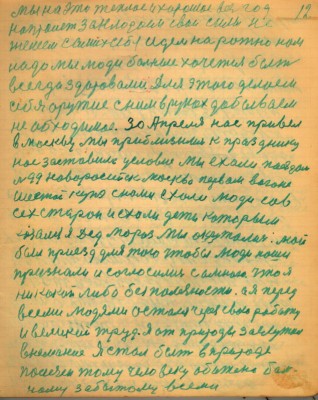 12
мы на это теплое и хорошое все год
напроíет за холодом свои сили не
женем самих себя идем на ратно нам
надо мы люди больше хочется быть
всегда здоровами Для этого делаем
себя оружие с ним в руках добываем
не обходимое. 30 Апреля нас привел
в москву, мы приблизились к празднику
нас заставило условие мы ехали поездом
N 99 новоросийск москва первом вагоне
шестой купэ снами ехали люди сов
сех старон и ехали дети каторым
я Дед мороз мы окутали: мой
был приезд для того чтобы люди наши
признали и согласилис самною это я
ни какой либо безполезность. а я перед
всеми людями остался через свою работу
и великий труд. Я от природы заслужил
внемание Я стал быть в природе
полезен тому человеку обижено бол-
ному забытому всеми